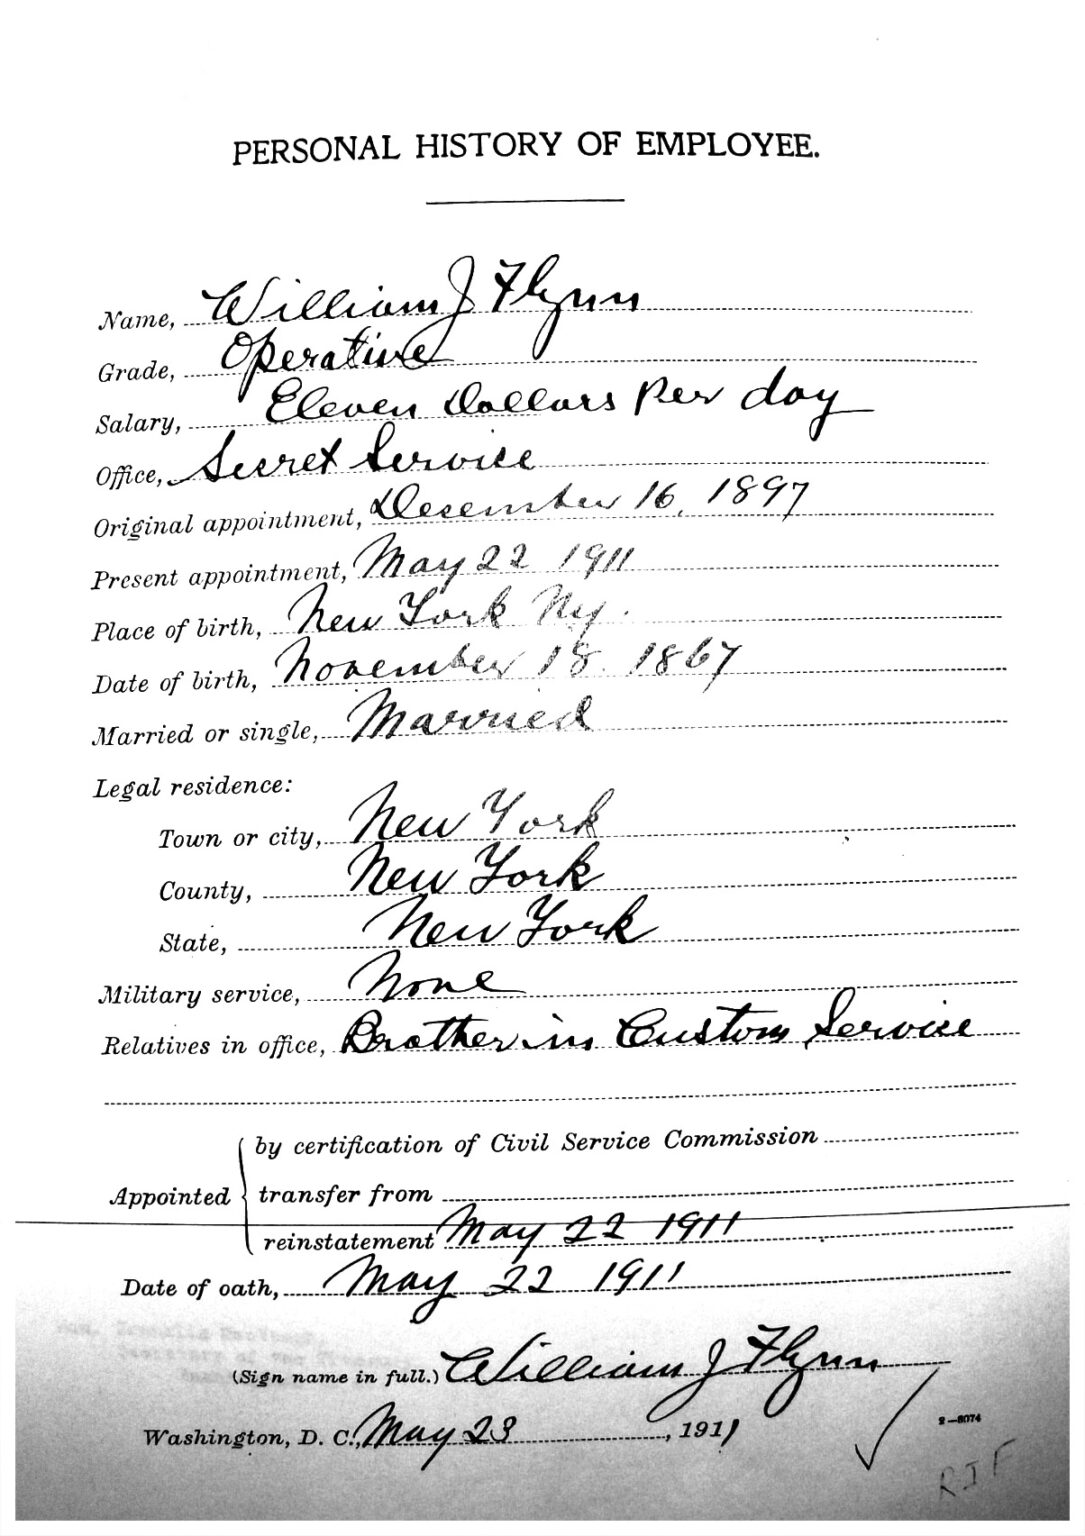 PERSONAL HISTORY OF EMPLOYEE.
Name, William J Flynn
Grade, Operative
Salary, Eleven Dollars Per day
Office, Secret Service
Original appointment, December 16, 1897
Present appointment, May 22 1911
Place of birth, New York Ny.
Date of birth, November 18 1867
Married or single, Married
Legal residence:
Town or city, New York
County, New York
State, New York
Military service, None
Relatives in office, Brother in Custom Service
by certification of Civil Service Commission
Appointed transfer from
reinstatement May 22 1911
Date of oath, May 22 1911
(Sign name in full.) William J Flynn
Washington, D. C., May 23, 1911
2—8074
R I F